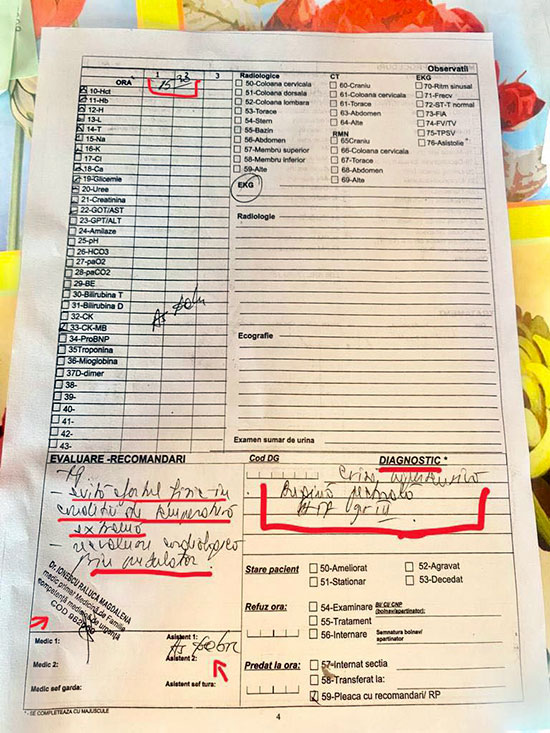 Observatii
ORA 1 15 33 3
10-Hct
11-Hb
12-H
13-L
14-T
15-Na
16-K
17-Cl
18-Ca
19-Glicemie
20-Uree
21-Creatinina
22-GOT/AST
23-GPT/ALT
24-Amilaze
25-pH
26-HCO3
27-paO2
28-paCO2
29-BE
30-Bilirubina T
31-Bilirubina D
32-CK
33-CK-MB
34-ProBNP
35Troponina
36-Mioglobina
37D-dimer
38-
39-
40-
41-
42-
43-
As
Radiologice
50-Coloana cervicala
51-Coloana dorsala
52-Coloana lombara
53-Torace
54-Stern
55-Bazin
56-Abdomen
57-Membru superior
58-Membru inferior
59-Alte
CT
60-Craniu
61-Coloana cervicala
61-Torace
63-Abdomen
64-Alte
RMN
65Craniu
66-Coloana cervicala
67-Torace
68-Abdomen
69-Alte
EKG
70-Ritm sinusal
71-Frecv
72-ST-T normal
73-FiA
74-FV/TV
75-TPSV
76-Asistolie
EKG
Radiologie
Ecografie
Examen sumar de urina
EVALUARE -RECOMANDARI
Rp
- evită efortul fizic în
condiții de temperatură
extremă
- reevaluare cardiologică
prin ambulator
Dr. IONESCU RALUCA MAGDALENA
medic primar Medicina de Familie
competenta medicina de urgenta
COD
Medic 1:
Medic 2:
Medic sef garda:
Asistent 1:
As
Asistent 2:
Asistent sef tura:
Cod DG
DIAGNOSTIC *
HTA
Stare pacient
50-Ameliorat
51-Stationar
52-Agravat
53-Decedat
Refuz ora:
54-Examinare
55-Tratament
56-Internare
BI/ CI/ CNP
(bolnav/apartinator):
Semnatura bolnav/
apartinator
Predat la ora:
57-Internat sectia
58-Transferat la:
59-Pleaca cu recomandari/ RP
* - SE COMPLETEAZA CU MAJUSCULE
4